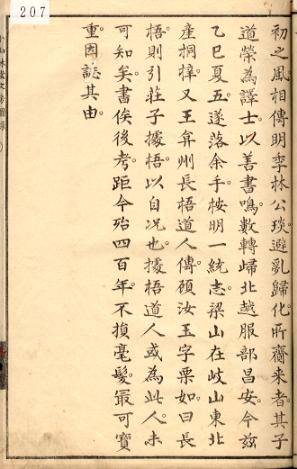 207
初之風相傳明李林公琰避亂歸化所齎来者其子
道榮為譯士以善書鳴數轉歸北越服部昌安今茲
乙巳夏五遂落余手按明一統志梁山在岐山東北
産桐梓又王弇州長梧道人傳碩汝玉字栗如曰長
梧則引莊子據梧以自况也據梧道人或為此人未
可知矣書俟後考距今殆四百年不損毫髮最可寶
重因誌其由